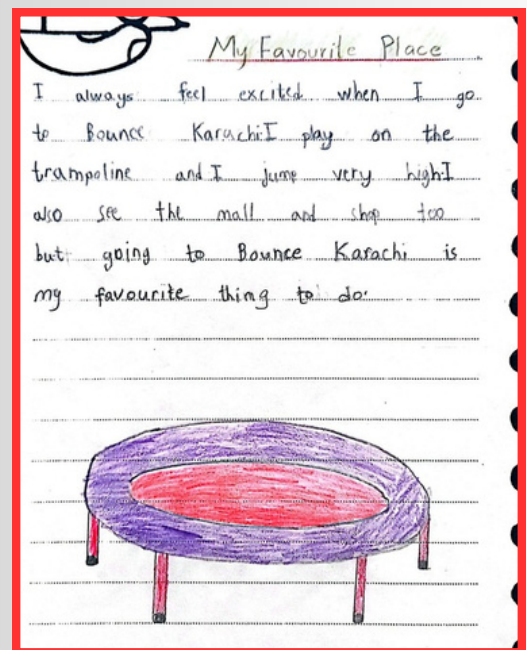 My Favourite Place
I always feel excited when I go
to Bounce Karachi.I play on the
trampoline and I jump very high.I
also see the mall and shop too
but going to Bounce Karachi is
my favourite thing to do.